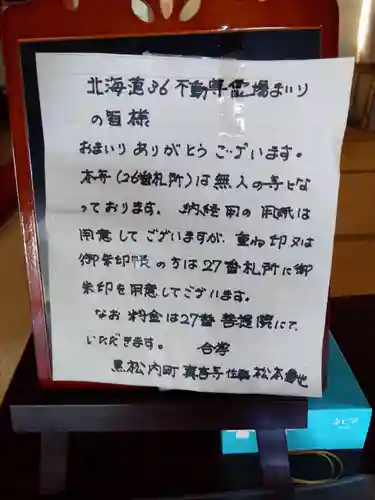 北海道36不動尊霊場まいり
の皆様
おまいりありがとうございます。
本寺(26番札所)は無人の寺とな
っております。納経用の用紙は
用意してございますが、重ね印又は
御朱印帳の方は27番札所に御
朱印を用意してございます。
なお料金は27番菩提院にて、
いただきます。 合掌
黒松内町 真言寺住職 松本
ネピア